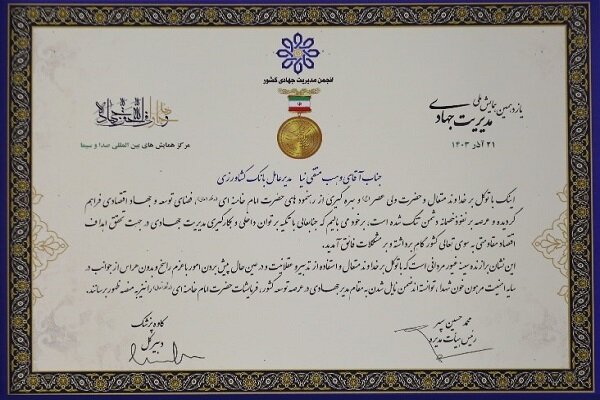 انجمن مدیریت جهادی کشور
یازدهمین همایش ملی
مدیریت جهادی
۲۱ آذر ۱۴۰۳
مرکز همایش های بین المللی صدا و سیما
جناب آقای وهب متقی نیا مدیرعامل بانک کشاورزی
اینک با توکل بر خداوند متعال و حضرت ولی عصر و بهره گیری از رهنمود های حضرت امام خامنه ای فضای توسعه و جهاد اقتصادی فراهم
گردیده و عرصه بر نفوذ خصمانه دشمن تنگ شده است، برخود می بالیم که جنابعالی با تکیه بر توان داخلی و بکارگیری مدیریت جهادی در جهت تحقق اهداف
اقتصاد مقاومتی به سوی تعالی کشور گام برداشته و بر مشکلات فائق آمدید.
این نشان برازنده سینه غیور مردانی است که با توکل بر خداوند متعال و استفاده از تدبیر و عقلانیت و در عین حال پیش برون امور با عزم راسخ و بدون هراس از جوانب در
سایه امنیت مرهون خون شهدا، توانسته اند ضمن نایل شدن به مقام مدیر جهادی در عرصه توسعه کشور، فرمایشات حضرت امام خامنه ای را نیز به منصه ظهور برسانند.
محمد حسین سپهر
رئیس هیات مدیره
کاوه پزشک
دبیر کل